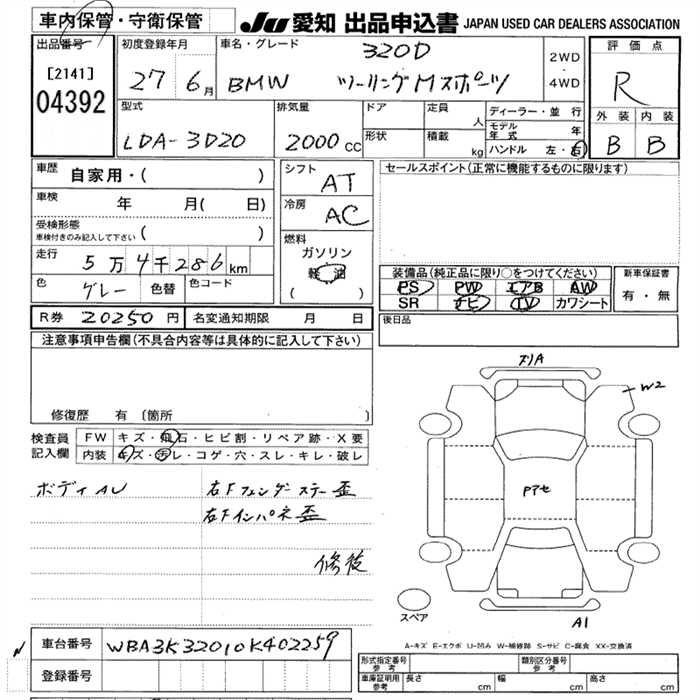 車内保管・守衛保管
JU 愛知 出品申込書 JAPAN USED CAR DEALERS ASSOCIATION
出品番号 初度登録年月 車名・グレード 320D 2WD ・ 4WD 評価点
[2141] 04392 27年 6月 BMW ツーリングMスポーツ R
型式 排気量 ドア 定員 人 ディーラー・並行 外装 内装
LDA-3D20 2000cc 形状 積載 kg モデル年式 年 B B
ハンドル 左・右
車歴 自家用・( ) シフト AT セールスポイント(正常に機能するものに限ります)
車検 年 月( 日) 冷房 AC
受検形態 ( )
車検付きのみ記入して下さい
燃料 ガソリン 軽油 ( )
走行 5万4千286km 装備品(純正品に限り○をつけてください) 新車保証書
色 グレー 色替 色コード PS PW エアB AW 有・無
SR ナビ TV カワシート
R券 20250円 名変通知期限 月 日 後日品
注意事項申告欄(不具合内容等は具体的に記入して下さい)
修復歴 有 [箇所
検査員記入欄 FW キズ・飛石・ヒビ割・リペア跡・X要
内装 キズ・汚レ・コゲ・穴・スレ・キレ・破レ
ボディAU 右Fフェンダーステー歪
右Fインパネ歪
修後
スリA
W2
Pアセ
スペア
A1
A-キズ E-エクボ U-凹み W-補修跡 S-サビ C-腐食 XX-交換済
車台番号 WBA3K32010K402259
登録番号
形式指定番号 参考 類別区分番号 参考
車庫証明用 参考 長さ cm 幅 cm 高さ cm